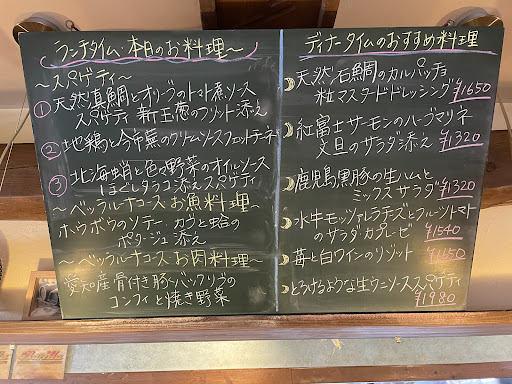 ランチタイム・本日のお料理〜
〜スパゲティ〜
① 天然真鯛とオリーブのトマト煮ソース
スパゲティ 新玉葱のフリット添え
② 地鶏と今市蕪のクリームソースフェットチーネ
③ 北海蛸と色々野菜のオイルソース
ほぐしタラコ添えスパゲティ
〜ベッラルーナコース・お魚料理〜
ホウボウのソテー カブと蛤の
ポタージュ添え
〜ベッラルーナコース・お肉料理〜
愛知産骨付き豚・バックリブの
コンフィと焼き野菜
ディナータイムのおすすめ料理
天然石鯛のカルパッチョ
粒マスタードドレッシング ¥1650
紅富士サーモンのハーブマリネ
文旦のサラダ添え ¥1320
鹿児島黒豚の生ハムと
ミックスサラダ ¥1320
水牛モッツァレラチーズとフルーツトマト
のサラダカプレーゼ ¥1540
苺と白ワインのリゾット ¥1650
とろけるような生ウニソーススパゲティ
¥1980